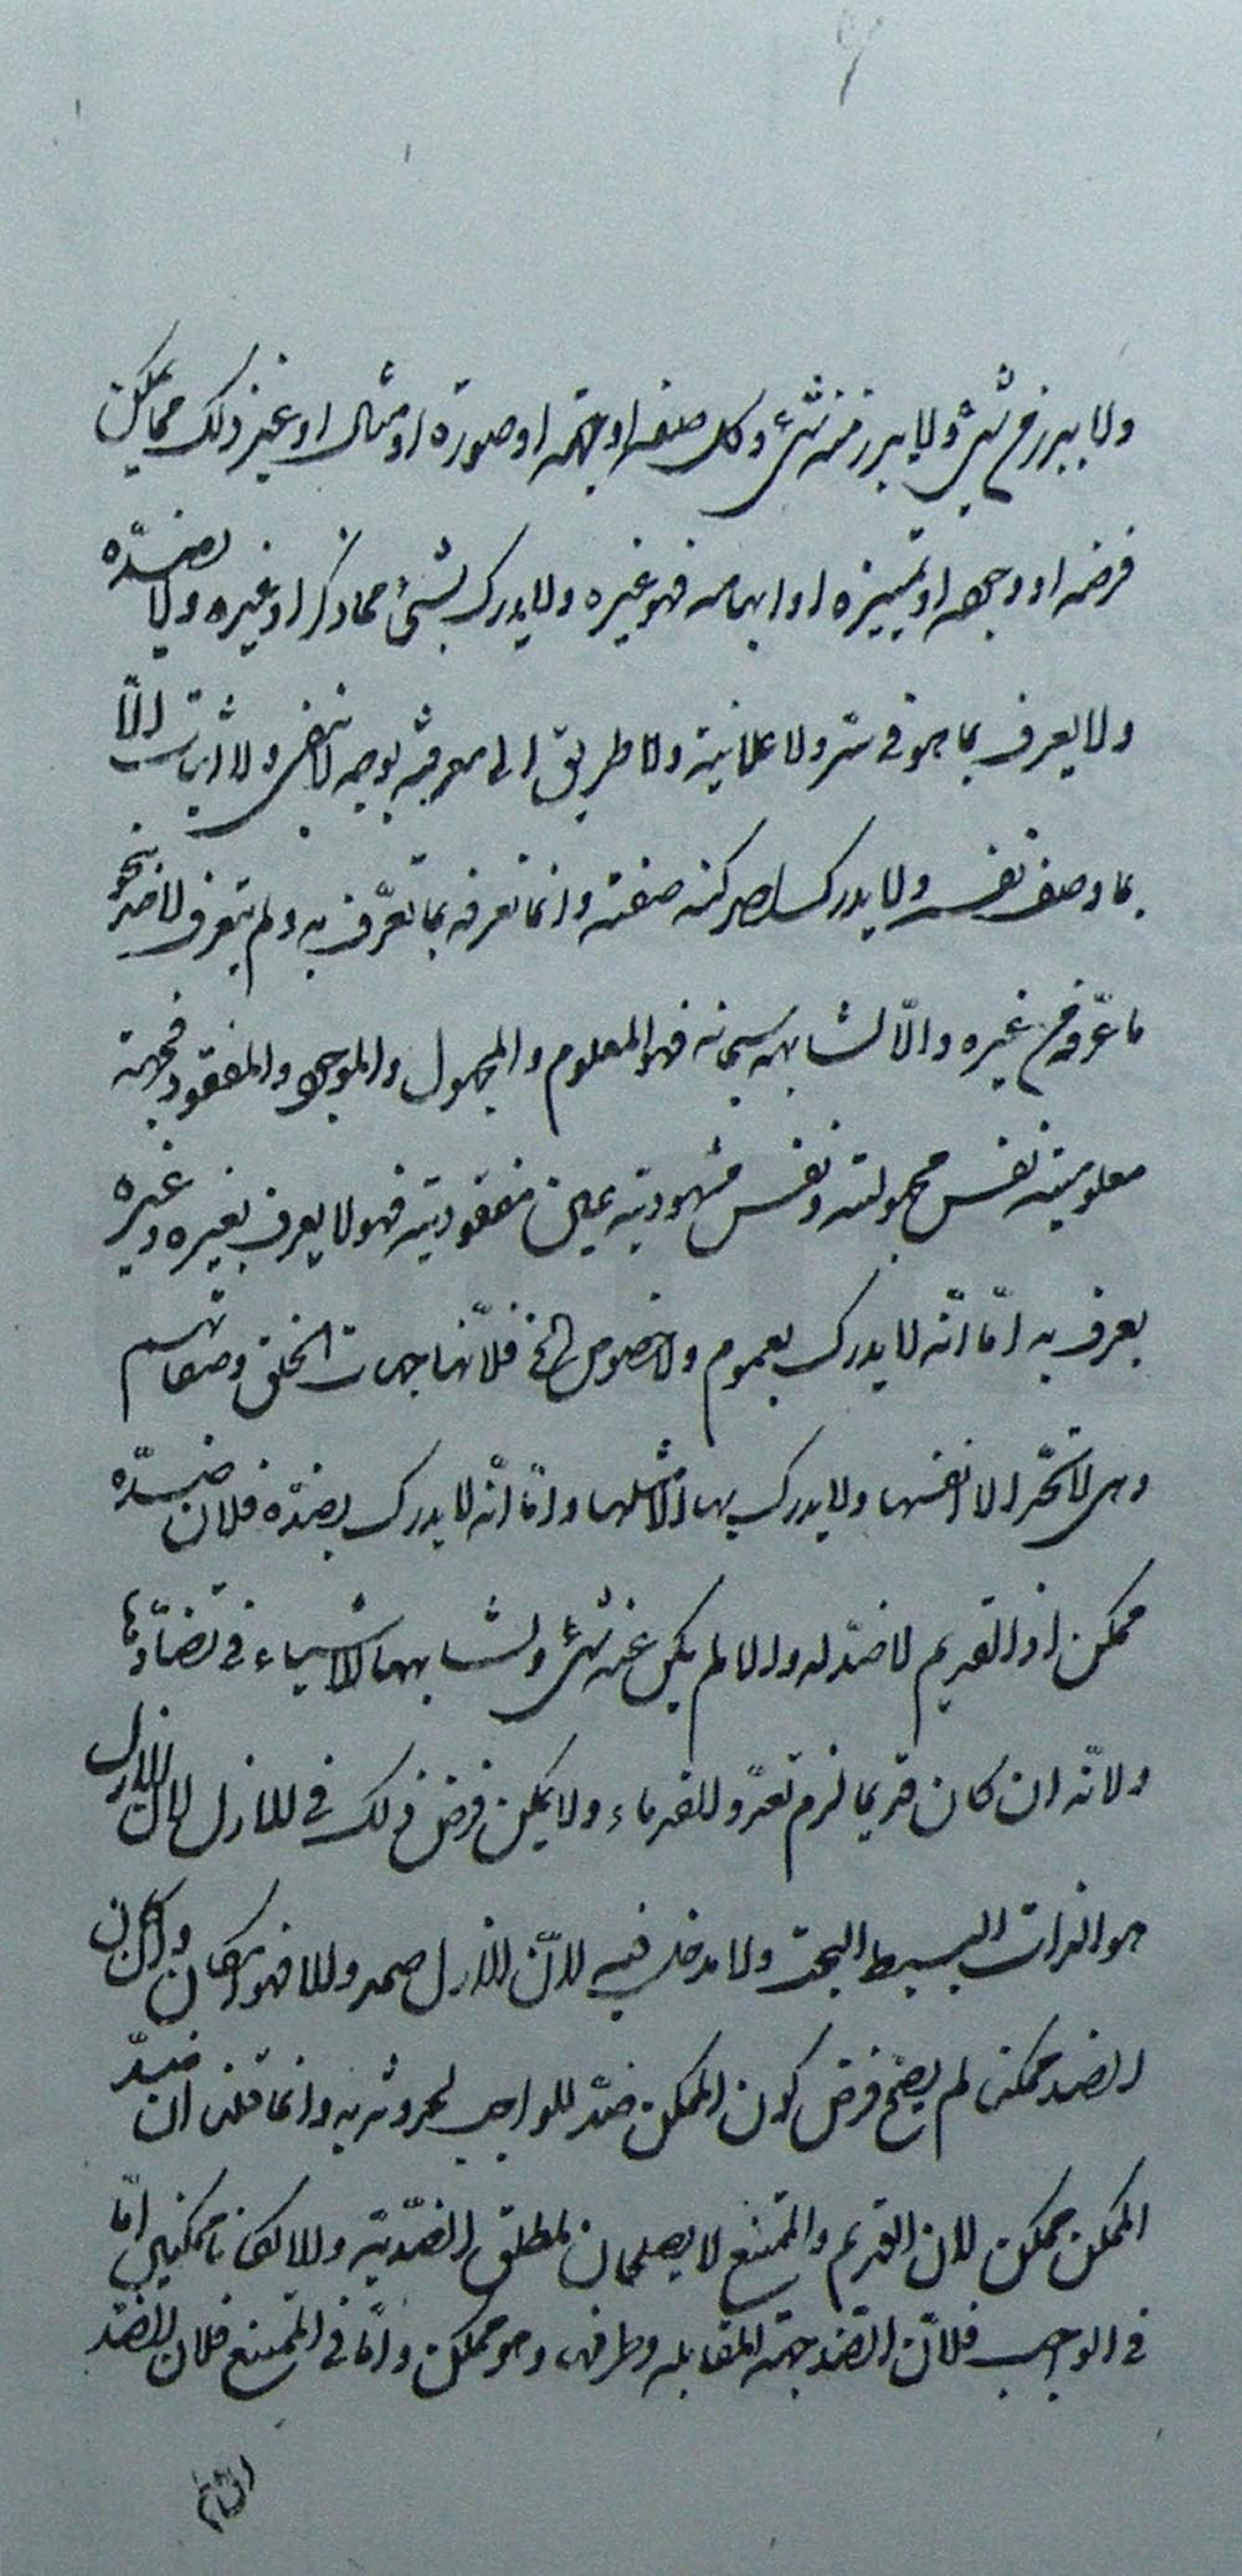 ولا يبرز من شئ ولا يبرز منه شئ وكل صفة او جهة او صورة او مثال او غير ذلك مما يمكن
فرضه او وجوده او تمييزه او ابهامه فهو غيره ولا يدرك بشئ مما ذكر او غيره ولا بضده
ولا يعرف بما هو فى سر ولا علانية ولا طريق الى معرفته بوجه لا بنفى ولا اثبات الّا
بما وصف نفسه ولا يدرك احد كنه صفته وانما تعرفه بما تعرّف به ولم يتعرف لاحد بنحو
ما عرّفه من غيره والّا لشابهه سبحانه فهو المعلوم والمجهول والموجود والمفقود فجهة
معلوميته نفس مجهوليته ونفس مشهوديته عين مفقوديته فهو لا يعرف بغيره وغيره
يعرف به امّا انّه لا يدرك بعموم ولا خصوص الخ فلانّها جهات الخلق وصفاتهم
وهى لا تحدّ الا انفسها ولا يدرك بها الا مثلها وامّا انّه لا يدرك بضدّه فلان ضدّه
ممكن اذ القديم لا ضدّ له والا لم يكن عنه شئ ولشابهها الاشياء فى تضادّها
ولانّه ان كان قديما لزم تعدّد القدماء ولا يمكن فرض ذلك فى الازل لان الازل
هو الذات البسيط البحت ولا مدخل فيه لانّ الازل صمد والا فهو امكان وان كان
الضد ممكنا لم يصح فرض كون الممكن ضد للواجب لحدوثه به وانما قلنا ان ضدّ
الممكن ممكن لان القديم والممتنع لا يصلحان لمطلق الضدّية والا لكانا ممكنين امّا
فى الواجب فلانّ الضد جهة المقابلة وطرفها وهو ممكن وامّا فى الممتنع فلان الضدّ